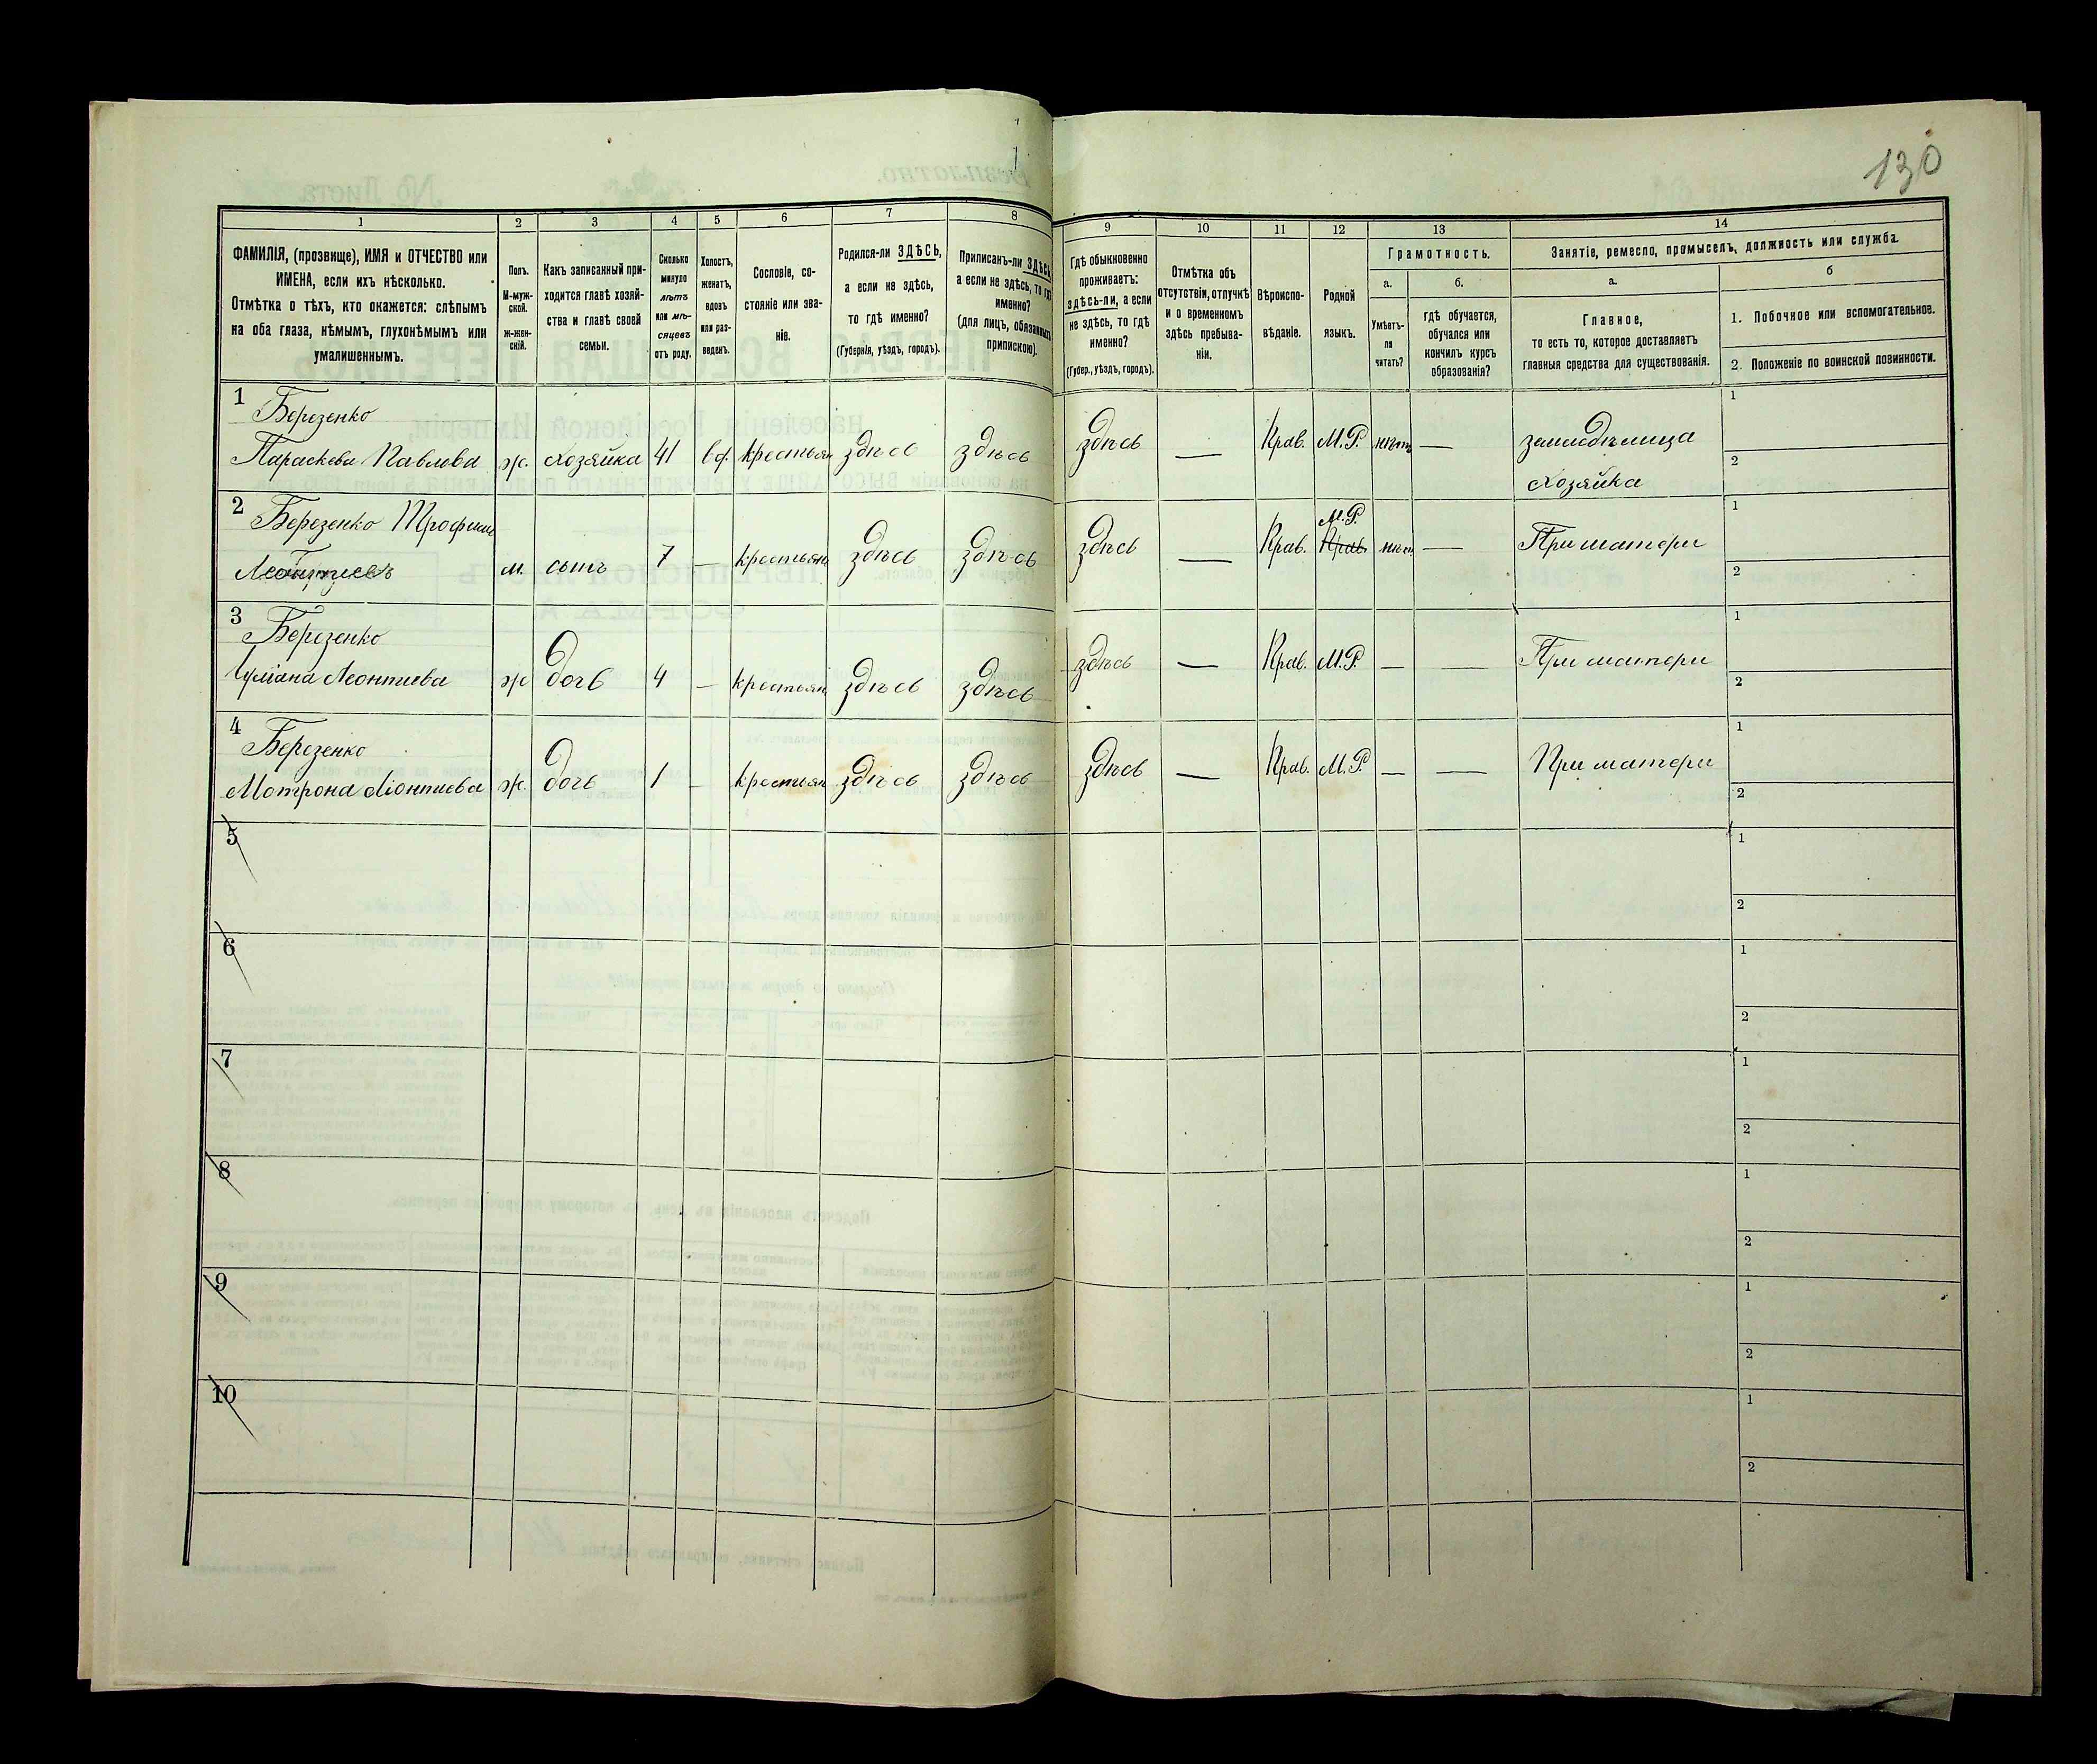 130
1 2 3 4 5 6 7 8 9 10 11 12 13 14
ФАМИЛІЯ, (прозвище), ИМЯ и ОТЧЕСТВО или
ИМЕНА, если ихъ нѣсколько.
Отмѣтка о тѣхъ, кто окажется: слѣпымъ
на оба глаза, нѣмымъ, глухонѣмымъ или
умалишеннымъ.
Полъ.
М-муж-
ской.
Ж-жен-
скій.
Какъ записанный при-
ходится главѣ хозяй-
ства и главѣ своей
семьи.
Сколько
минуло
лѣтъ
или мѣ-
сяцевъ
отъ роду.
Холостъ,
женатъ,
вдовъ
или раз-
веденъ.
Сословіе, со-
стояніе или зва-
ніе.
Родился-ли ЗДѢСЬ,
а если не здѣсь,
то гдѣ именно?
(Губернія, уѣздъ, городъ).
Приписанъ-ли ЗДѢСЬ,
а если не здѣсь, то гдѣ
именно?
(для лицъ, обязанныхъ
припискою).
Гдѣ обыкновенно
проживаетъ:
здѣсь-ли, а если
не здѣсь, то гдѣ
именно?
(Губер., уѣздъ, городъ).
Отмѣтка объ
отсутствіи, отлучкѣ
и о временномъ
здѣсь пребыва-
ніи.
Вѣроиспо-
вѣданіе.
Родной
языкъ.
Грамотность.
а.
Умѣетъ-
ли
читать?
б.
гдѣ обучается,
обучался или
кончилъ курсъ
образованія?
Занятіе, ремесло, промыселъ, должность или служба.
а.
Главное,
то есть то, которое доставляетъ
главныя средства для существованія.
б
1. Побочное или вспомогательное.
2. Положеніе по воинской повинности.
1 Березенко
Параскева Павлова ж. хозяйка 41 вд. крестьян здѣсь здѣсь здѣсь — Прав. М.Р. нѣтъ — земледѣлица
хозяйка
1
2
2 Березенко Трофим
Леонтиевъ м. сынъ 7 — крестьян здѣсь здѣсь здѣсь — Прав. М.Р. нѣтъ — При матери
1
2
3 Березенко
Улiана Леонтиева ж дочь 4 — крестьян здѣсь здѣсь здѣсь — Прав. М.Р. — — При матери
1
2
4 Березенко
Мотрона Леонтиева ж. дочь 1 — крестьян здѣсь здѣсь здѣсь — Прав. М.Р. — — При матери
1
2
5
1
2
6
1
2
7
1
2
8
1
2
9
1
2
10
1
2